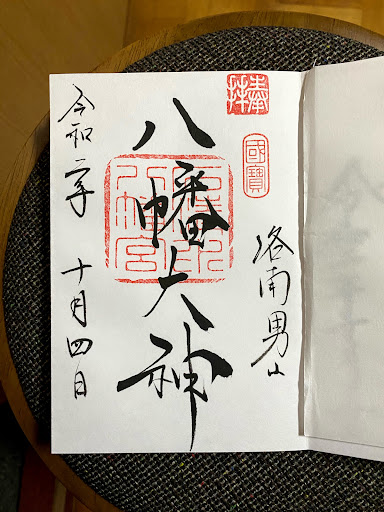 奉拝
國寶
洛南男山
八幡大神
石清水八幡宮
令和二年 十月四日